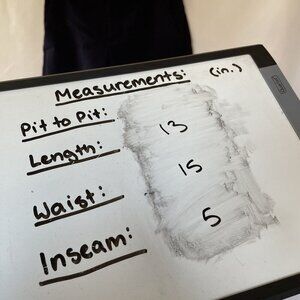 Measurements: (in.)
Pit to Pit:
13
Length:
15
Waist:
5
Inseam: